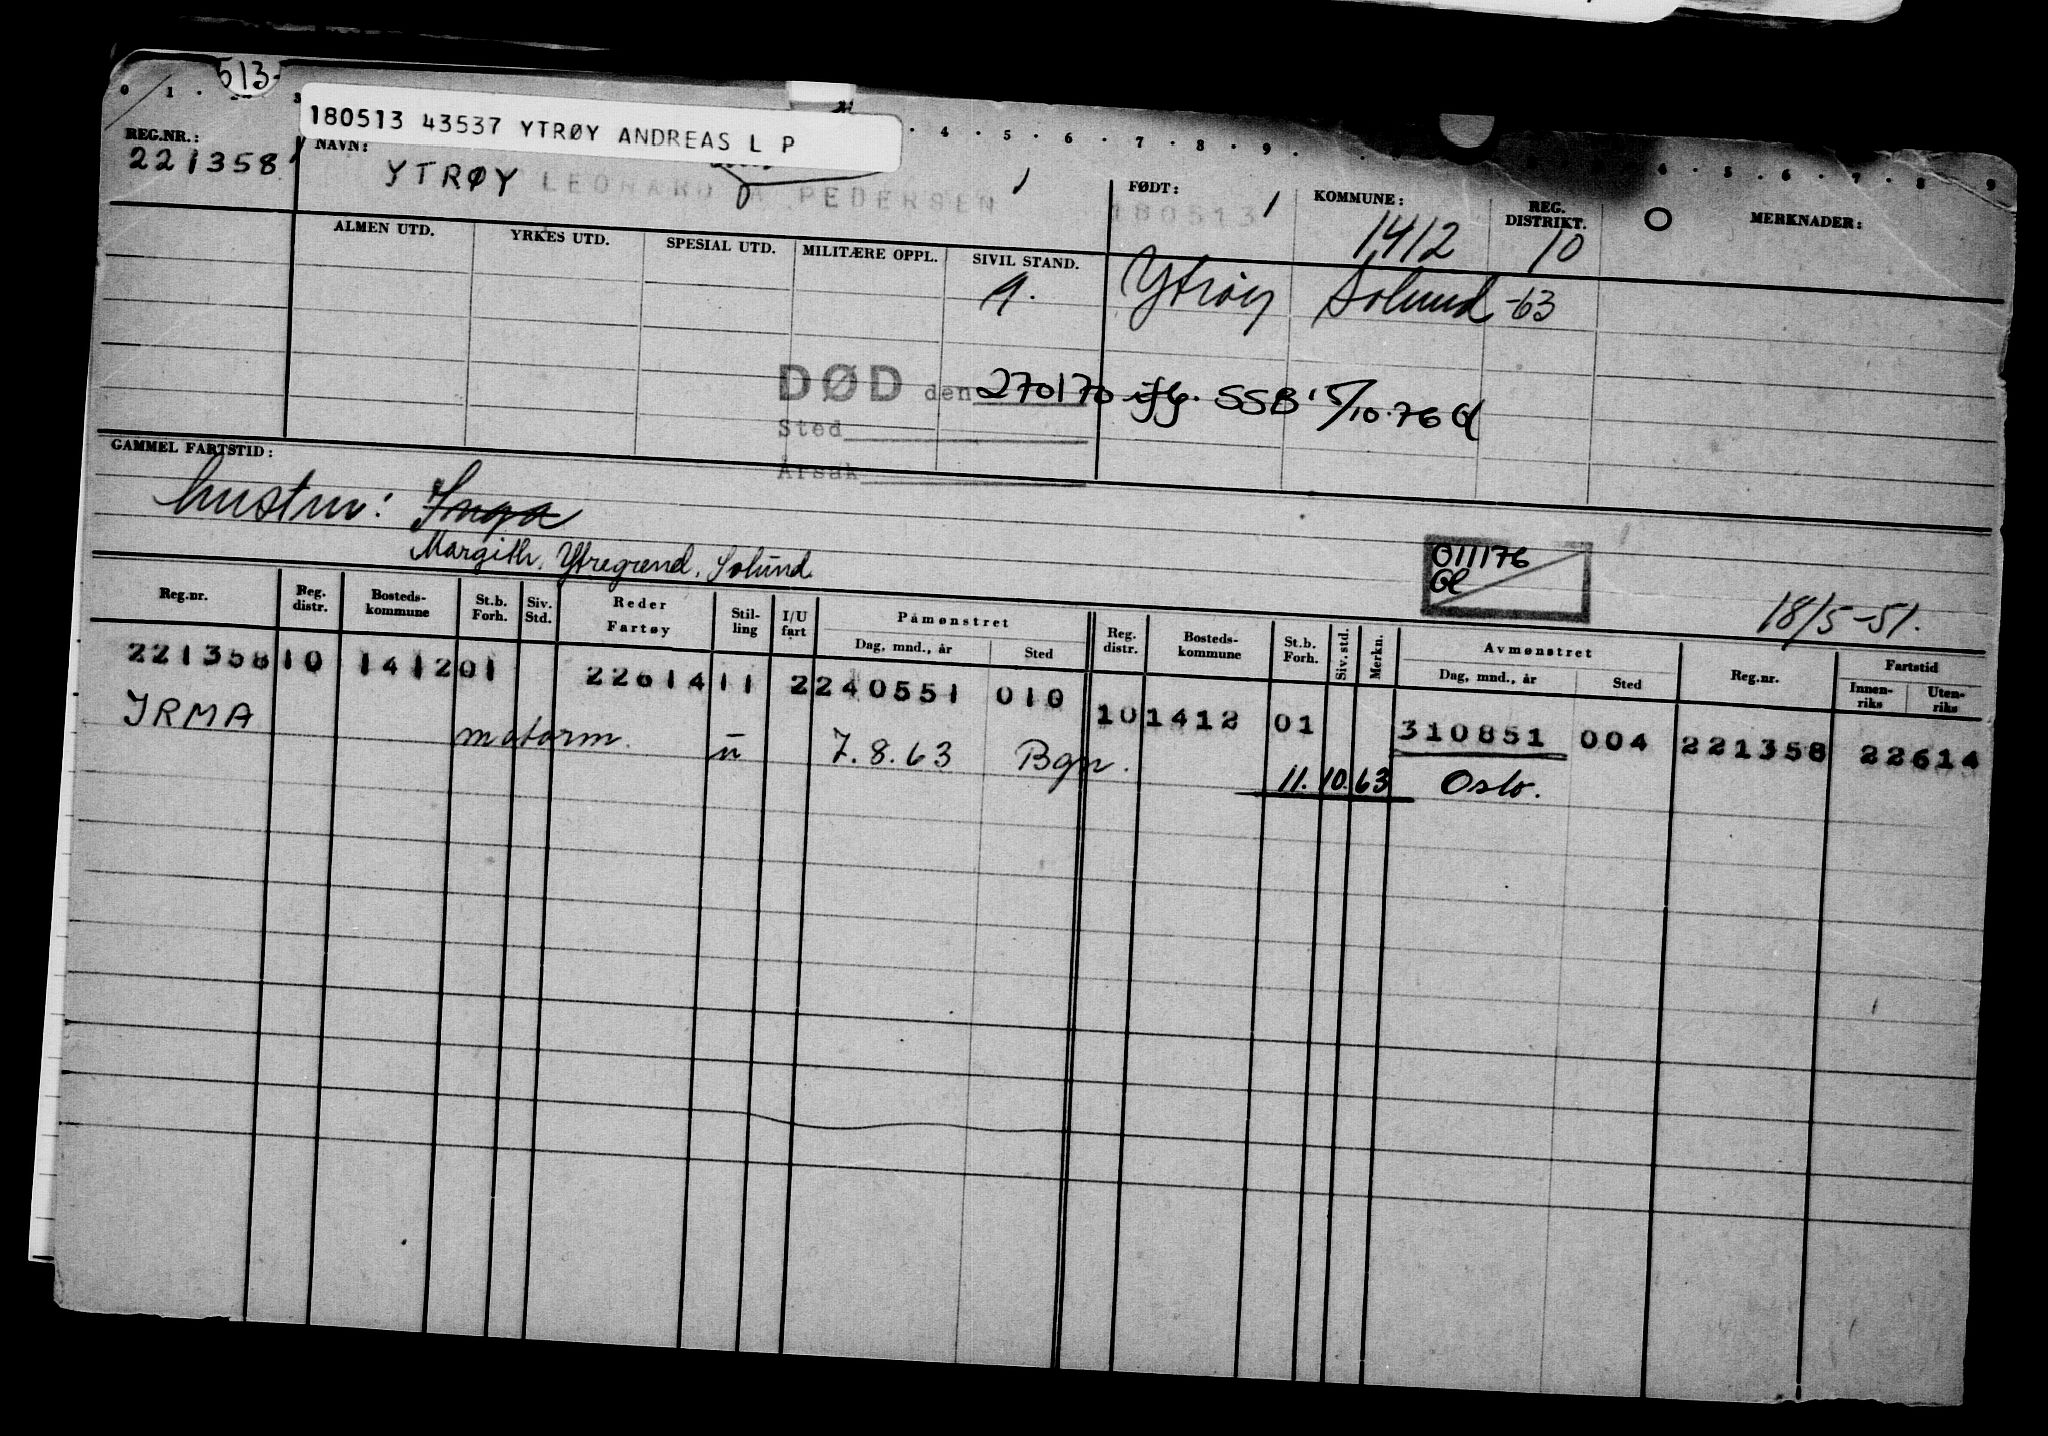 513
180513 43537 YTRØY ANDREAS L P
0 1 . 3 4 . 5 . 6 . 7 . 8 . 9 . 4 . 5 . 6 . 7 . 8 . 9
REG.NR.: NAVN: FØDT: KOMMUNE: REG. DISTRIKT. MERKNADER:
221358 YTRØY LEONARD PEDERSEN 180513 1412 10
ALMEN UTD. YRKES UTD. SPESIAL UTD. MILITÆRE OPPL. SIVIL STAND.
g. Ytrøy Solund -63
DØD den 270170 iflg. SSB 5/10.76
Sted
Årsak
GAMMEL FARTSTID:
hustru: Inga
Margith, Ytregrend, Solund.
011176
18/5-51.
Reg.nr. Reg. distr. Bosteds-kommune St.b. Forh. Siv. Std. Reder Fartøy Stil-ling I/U fart Påmønstret Dag, mnd., år Sted Reg. distr. Bosteds-kommune St.b. Forh. Siv. std. Merkn. Avmønstret Dag, mnd., år Sted Reg.nr. Fartstid Innen-riks Uten-riks
221358 10 1412 01 22614 11 2 240551 010 10 1412 01 310851 004 221358 22614
IRMA motorm. u 7.8.63 Bgn. 11.10.63 Oslo.